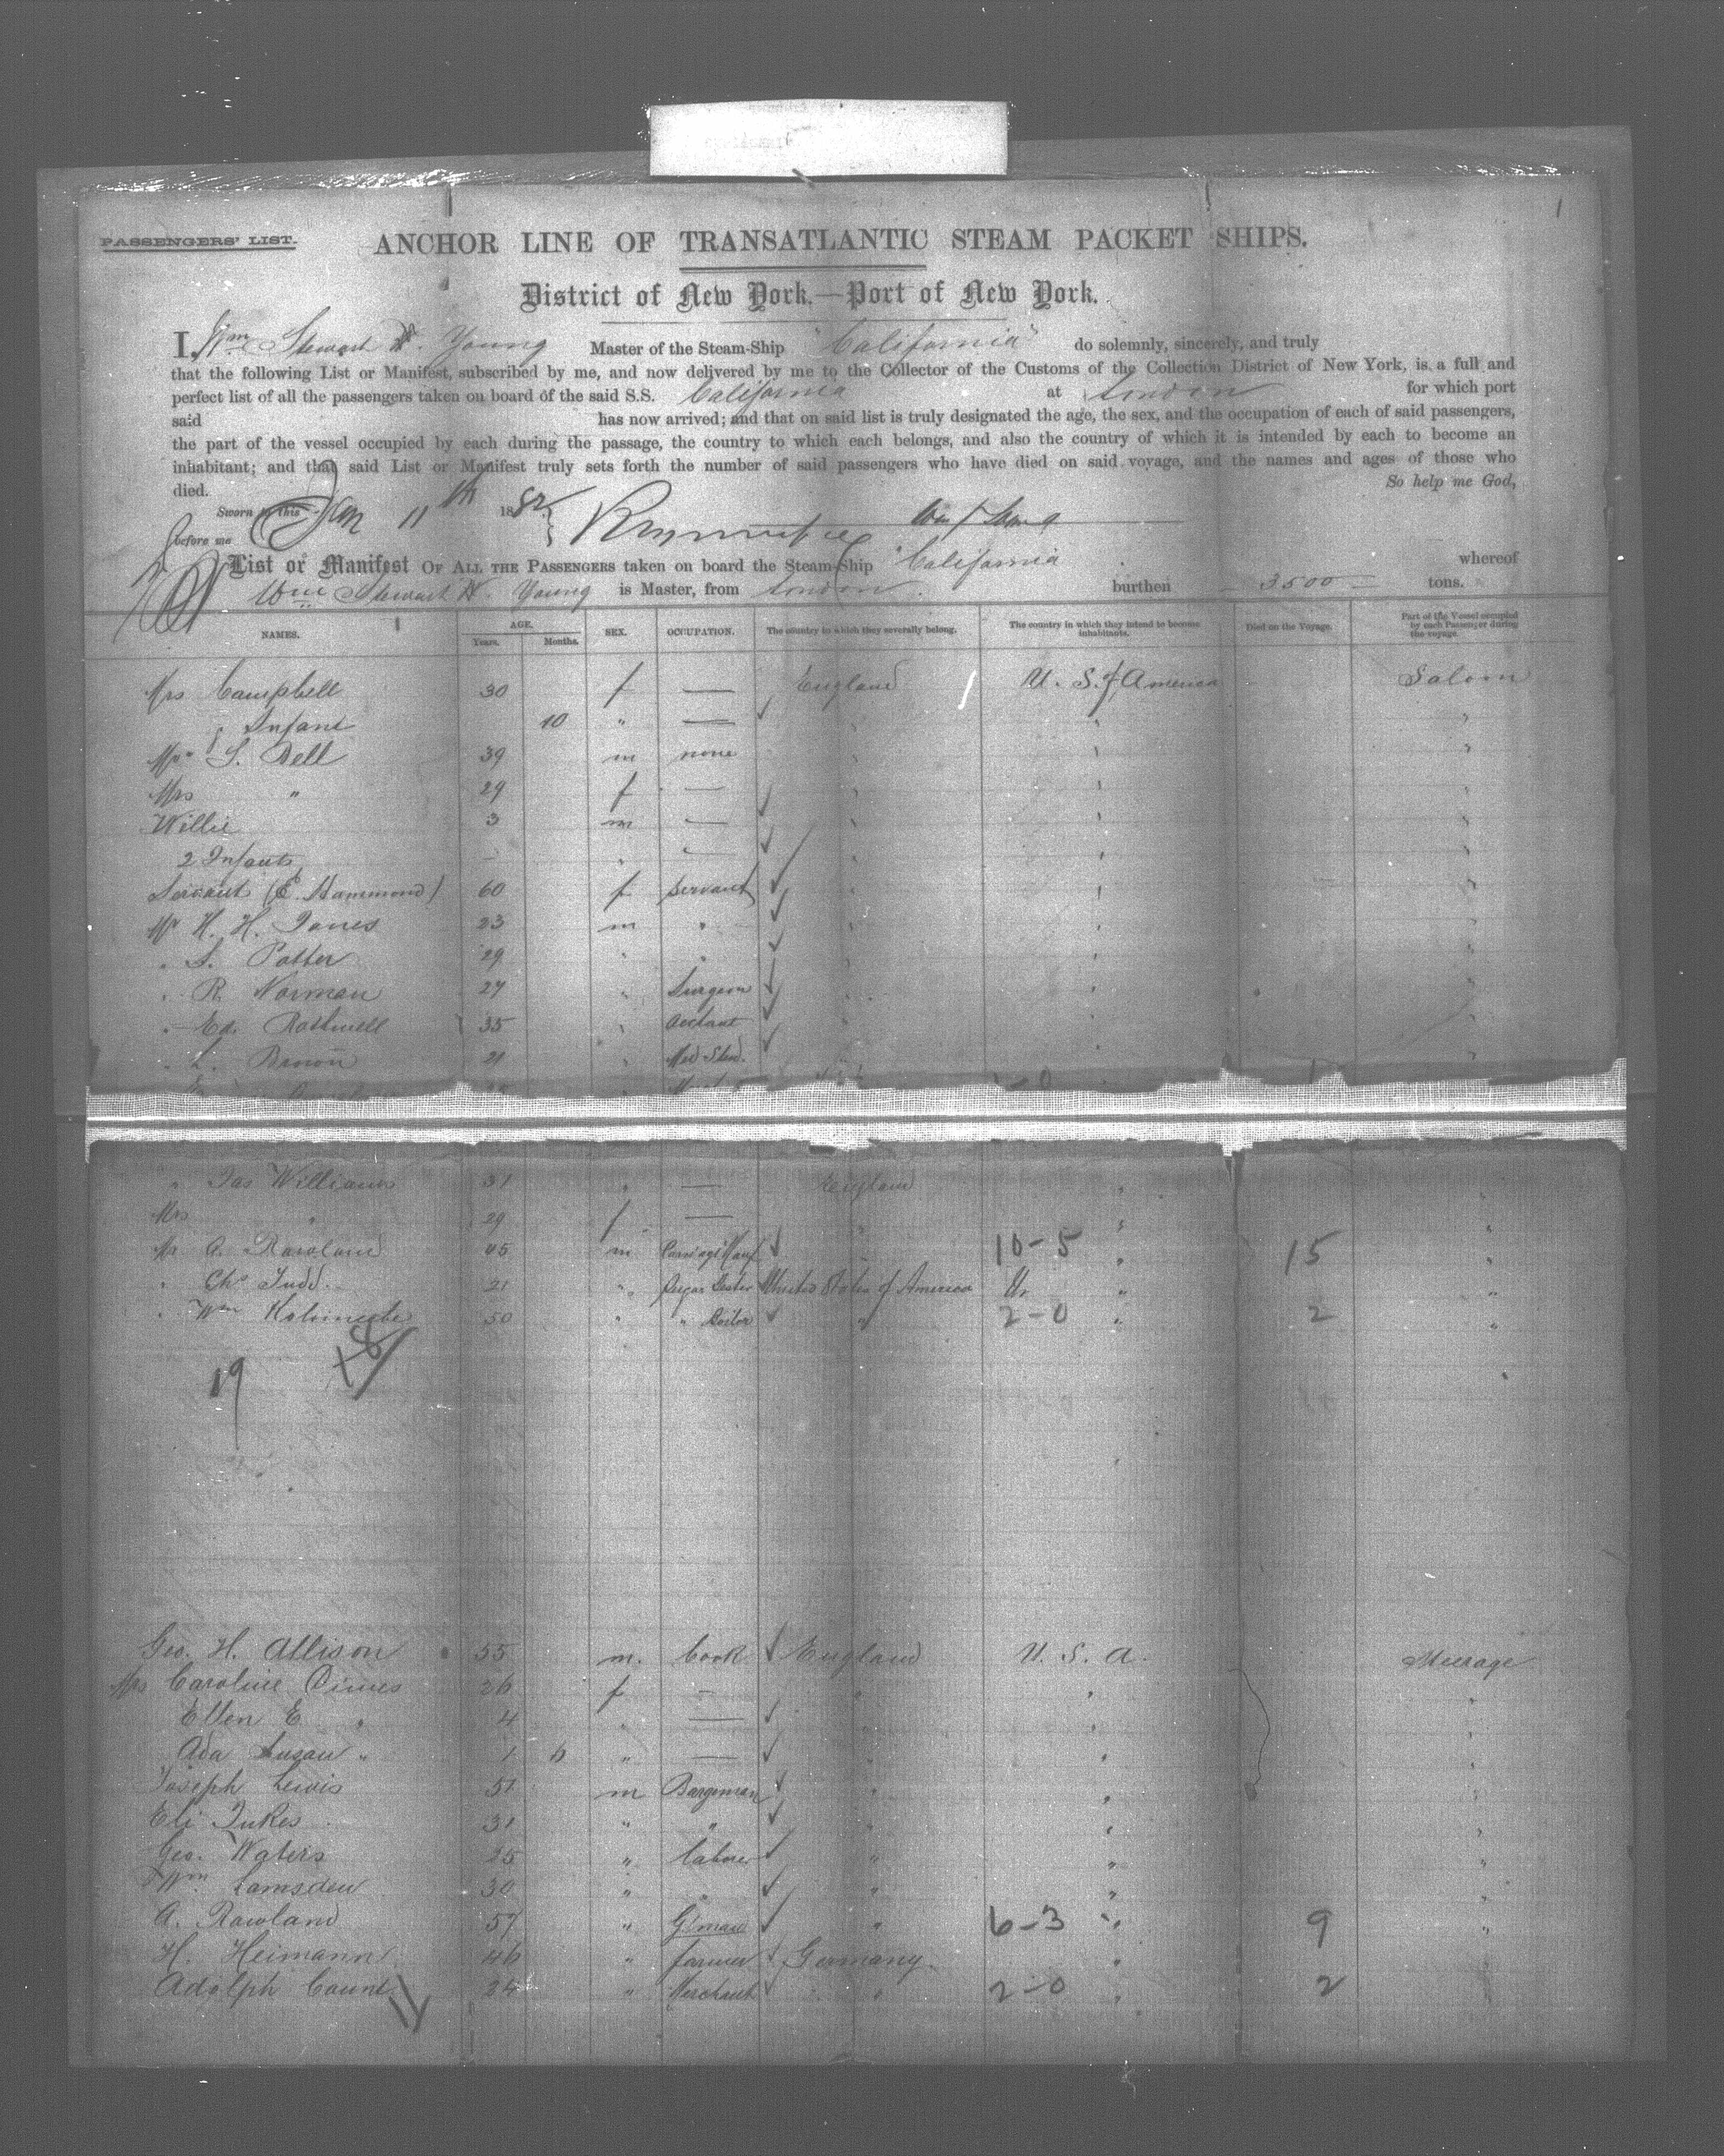 1
PASSENGERS' LIST.
ANCHOR LINE OF TRANSATLANTIC STEAM PACKET SHIPS.
District of New York.—Port of New York.
I, Wm Stewart W. Young Master of the Steam-Ship "California" do solemnly, sincerely, and truly
that the following List or Manifest, subscribed by me, and now delivered by me to the Collector of the Customs of the Collection District of New York, is a full and
perfect list of all the passengers taken on board of the said S.S. California at London for which port
said has now arrived; and that on said list is truly designated the age, the sex, and the occupation of each of said passengers,
the part of the vessel occupied by each during the passage, the country to which each belongs, and also the country of which it is intended by each to become an
inhabitant; and that said List or Manifest truly sets forth the number of said passengers who have died on said voyage, and the names and ages of those who
died. So help me God,
Sworn to this Jan 11th 1882
before me
List or Manifest OF ALL THE PASSENGERS taken on board the Steam-Ship "California whereof
Wm Stewart W. Young is Master, from London. burthen 3500 tons.
NAMES. AGE. Years. Months. SEX. OCCUPATION. The country to which they severally belong. The country in which they intend to become inhabitants. Died on the Voyage. Part of the Vessel occupied by each Passenger during the voyage.
Mrs Campbell 30 f — England U. S. of America Saloon
" Infant 10 " — " "
Mr S. Bell 39 m none " " "
Mrs " 29 f — " " "
Willie 3 m — " " "
2 Infants " " " "
Servant (E. Hammond) 60 f servant " " "
Mr H. H. Jones 23 m " " " "
" S. Potter 29 " " " " "
" R. Norman 27 " Surgeon " " "
" Ed. Rothwell 35 " Acctant " "
" L. Brown 21 " Med Stud. " "
" Jas Williams 31 " — England " "
Mrs " 29 f — " " "
Mr A. Rowland 45 m Carriage Manf " 10-5 " 15 "
" Chs Judd. 21 " Sugar United States of America " "
" Wm 50 " " " 2-0 " 2 "
19
Geo. H. Allison 55 m. Cook England U. S. A. Steerage
Mrs Caroline Dimes 26 f - " " "
Ellen E " 4 " — " " "
Ada Susan " 1 6 " — " " "
Joseph Lewis 51 m Bargeman " " "
Eli Jukes 31 " " " " "
Geo. Waters 25 " Laborer " " "
Wm Lamsden 30 " " " " "
A. Rowland 57 " G'man " 6-3 " 9 "
H. Heimann 46 " farmer Germany. "
Adolph 24 " Merchant " 2-0 " 2